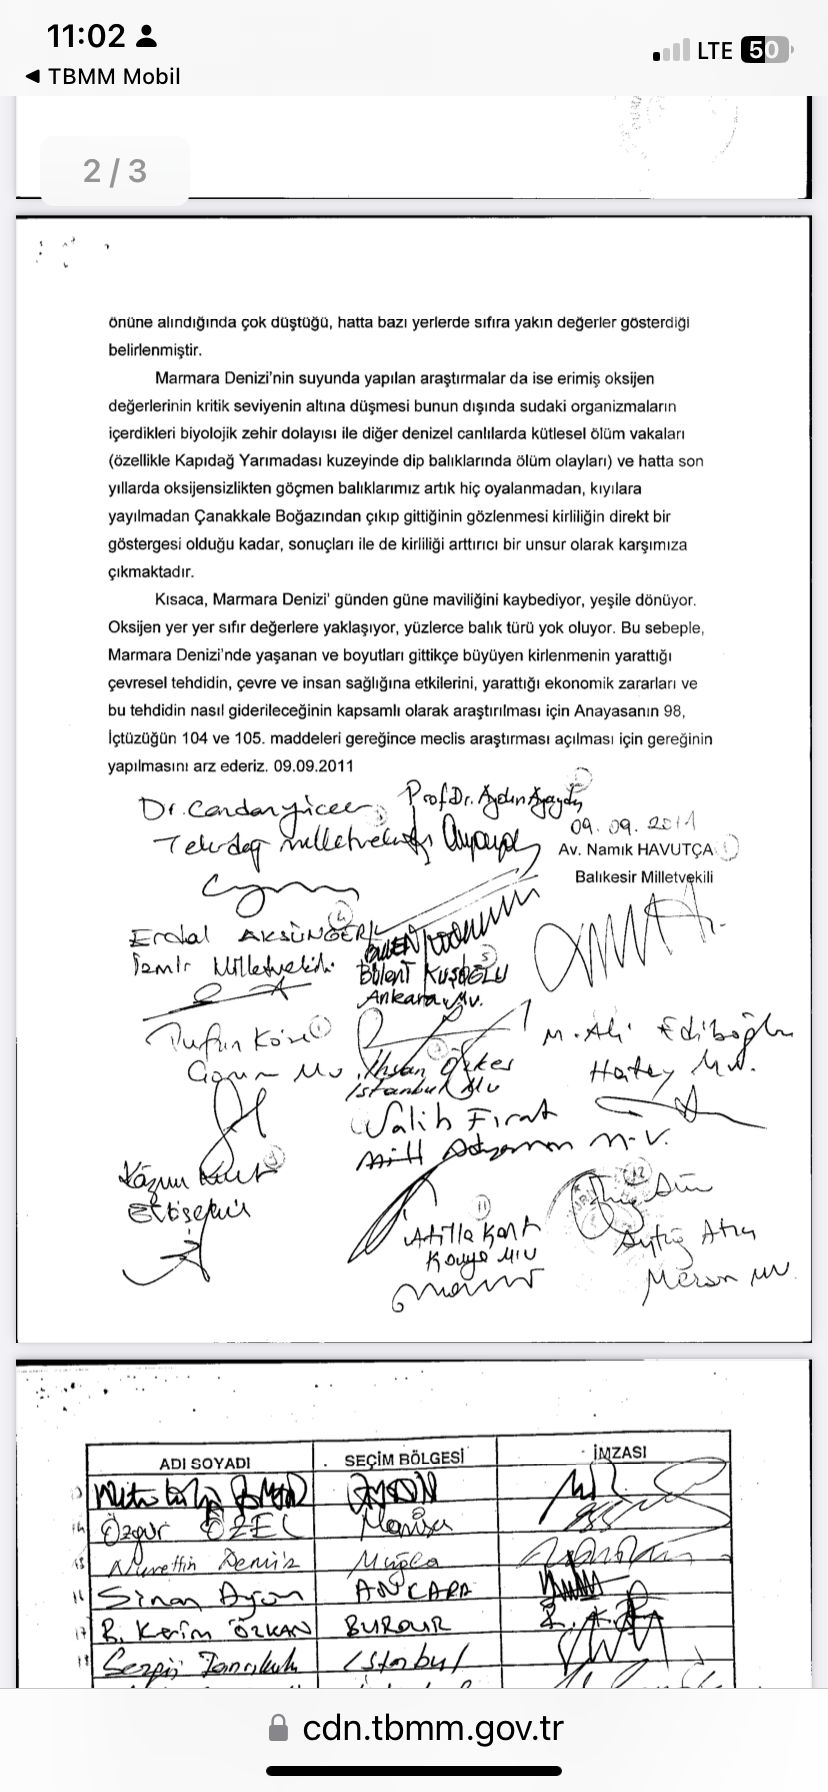 11:02
LTE 50
◀ TBMM Mobil
2 / 3
önüne alındığında çok düştüğü, hatta bazı yerlerde sıfıra yakın değerler gösterdiği
belirlenmiştir.
Marmara Denizi'nin suyunda yapılan araştırmalar da ise erimiş oksijen
değerlerinin kritik seviyenin altına düşmesi bunun dışında sudaki organizmaların
içerdikleri biyolojik zehir dolayısı ile diğer denizel canlılarda kütlesel ölüm vakaları
(özellikle Kapıdağ Yarımadası kuzeyinde dip balıklarında ölüm olayları) ve hatta son
yıllarda oksijensizlikten göçmen balıklarımız artık hiç oyalanmadan, kıyılara
yayılmadan Çanakkale Boğazından çıkıp gittiğinin gözlenmesi kirliliğin direkt bir
göstergesi olduğu kadar, sonuçları ile de kirliliği arttırıcı bir unsur olarak karşımıza
çıkmaktadır.
Kısaca, Marmara Denizi' günden güne maviliğini kaybediyor, yeşile dönüyor.
Oksijen yer yer sıfır değerlere yaklaşıyor, yüzlerce balık türü yok oluyor. Bu sebeple,
Marmara Denizi'nde yaşanan ve boyutları gittikçe büyüyen kirlenmenin yarattığı
çevresel tehdidin, çevre ve insan sağlığına etkilerini, yarattığı ekonomik zararları ve
bu tehdidin nasıl giderileceğinin kapsamlı olarak araştırılması için Anayasanın 98,
İçtüzüğün 104 ve 105. maddeleri gereğince meclis araştırması açılması için gereğinin
yapılmasını arz ederiz. 09.09.2011
Dr. Candan Yüceer
Prof Dr. Aydın Ayaydın
Tekirdağ Milletvekili
09.09.2011
Av. Namık HAVUTÇA
Balıkesir Milletvekili
Erdal AKSÜNGER
İzmir Milletvekili
Bülent KUŞOĞLU
Ankara Mv.
Tufan Köse
Çorum Mv
İhsan Özkes
İstanbul Mv
M. Ali Ediboğlu
Hatay Mv.
Salih Fırat
Adıyaman M.V.
Kazım Kurt
Eskişehir
Atilla Kart
Konya Mv
Aytuğ Atıcı
Mersin Mv.
ADI SOYADI SEÇİM BÖLGESİ İMZASI
14 Özgür ÖZEL Manisa
15 Nurettin Demir Muğla
16 Sinan Aygün ANKARA
17 R. Kerim ÖZKAN BURDUR
18 Sezgin Tanrıkulu İstanbul
cdn.tbmm.gov.tr